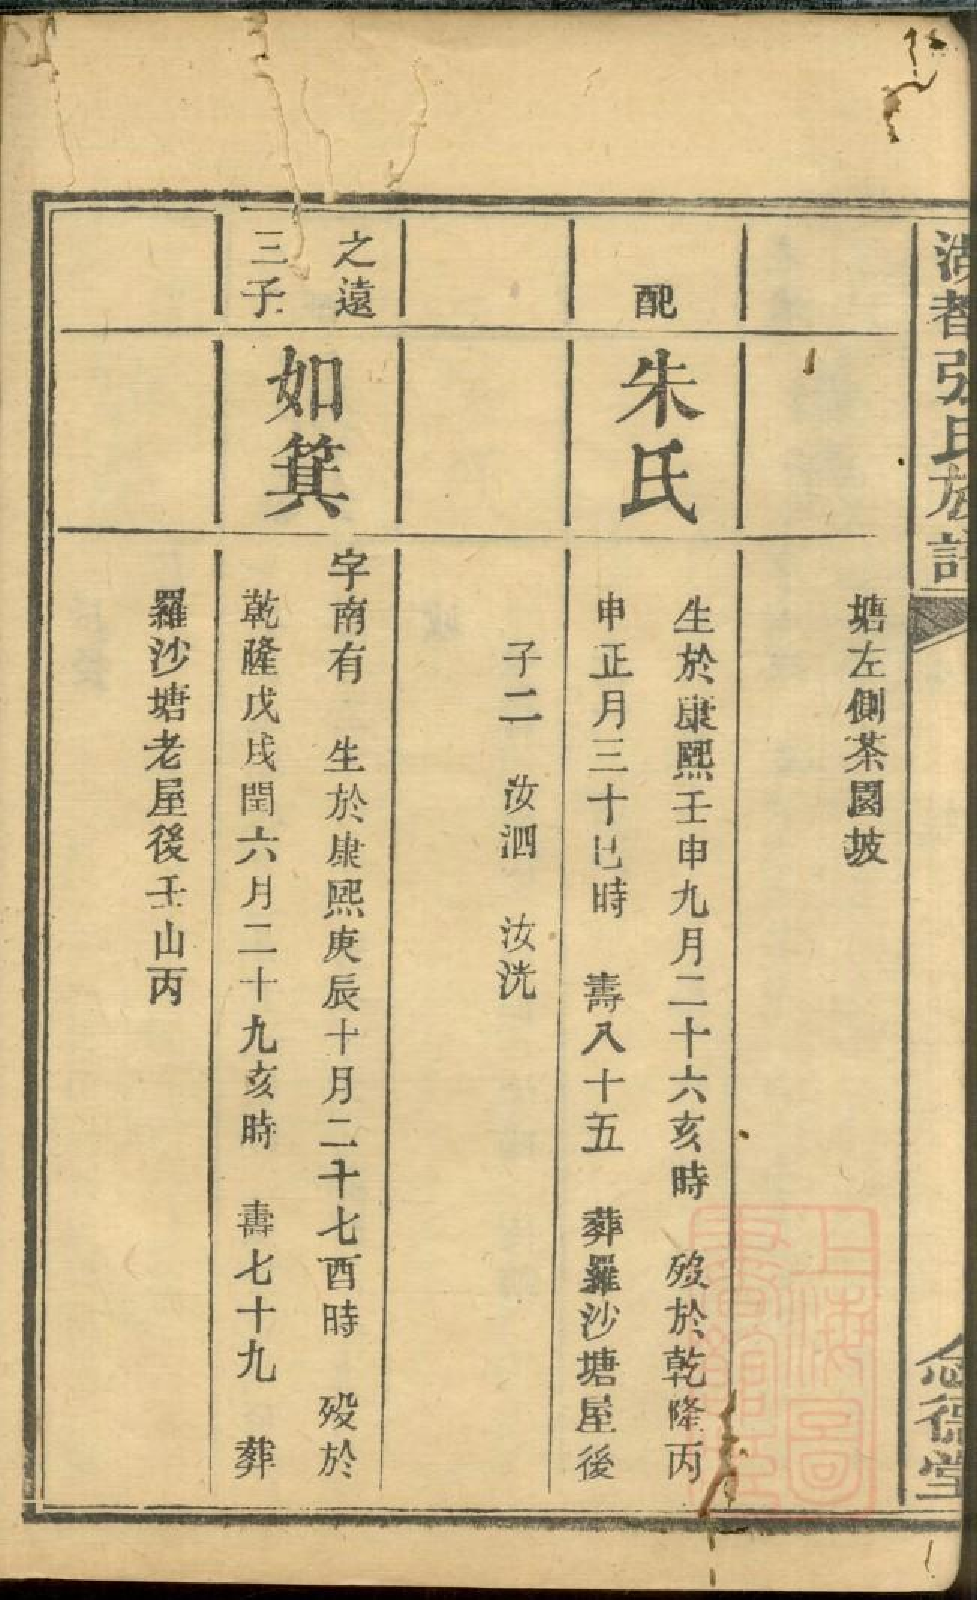 張氏族譜
塘左側茶園坡
配
朱氏
生於康熙壬申九月二十六亥時 歿於乾隆丙
申正月三十巳時 壽八十五 葬羅沙塘屋後
子二 汝泗 汝洸
之遠
三子
如箕
字南有 生於康熙庚辰十月二十七酉時 歿於
乾隆戊戌閏六月二十九亥時 壽七十九 葬
羅沙塘老屋後壬山丙
德堂
上海圖書館藏